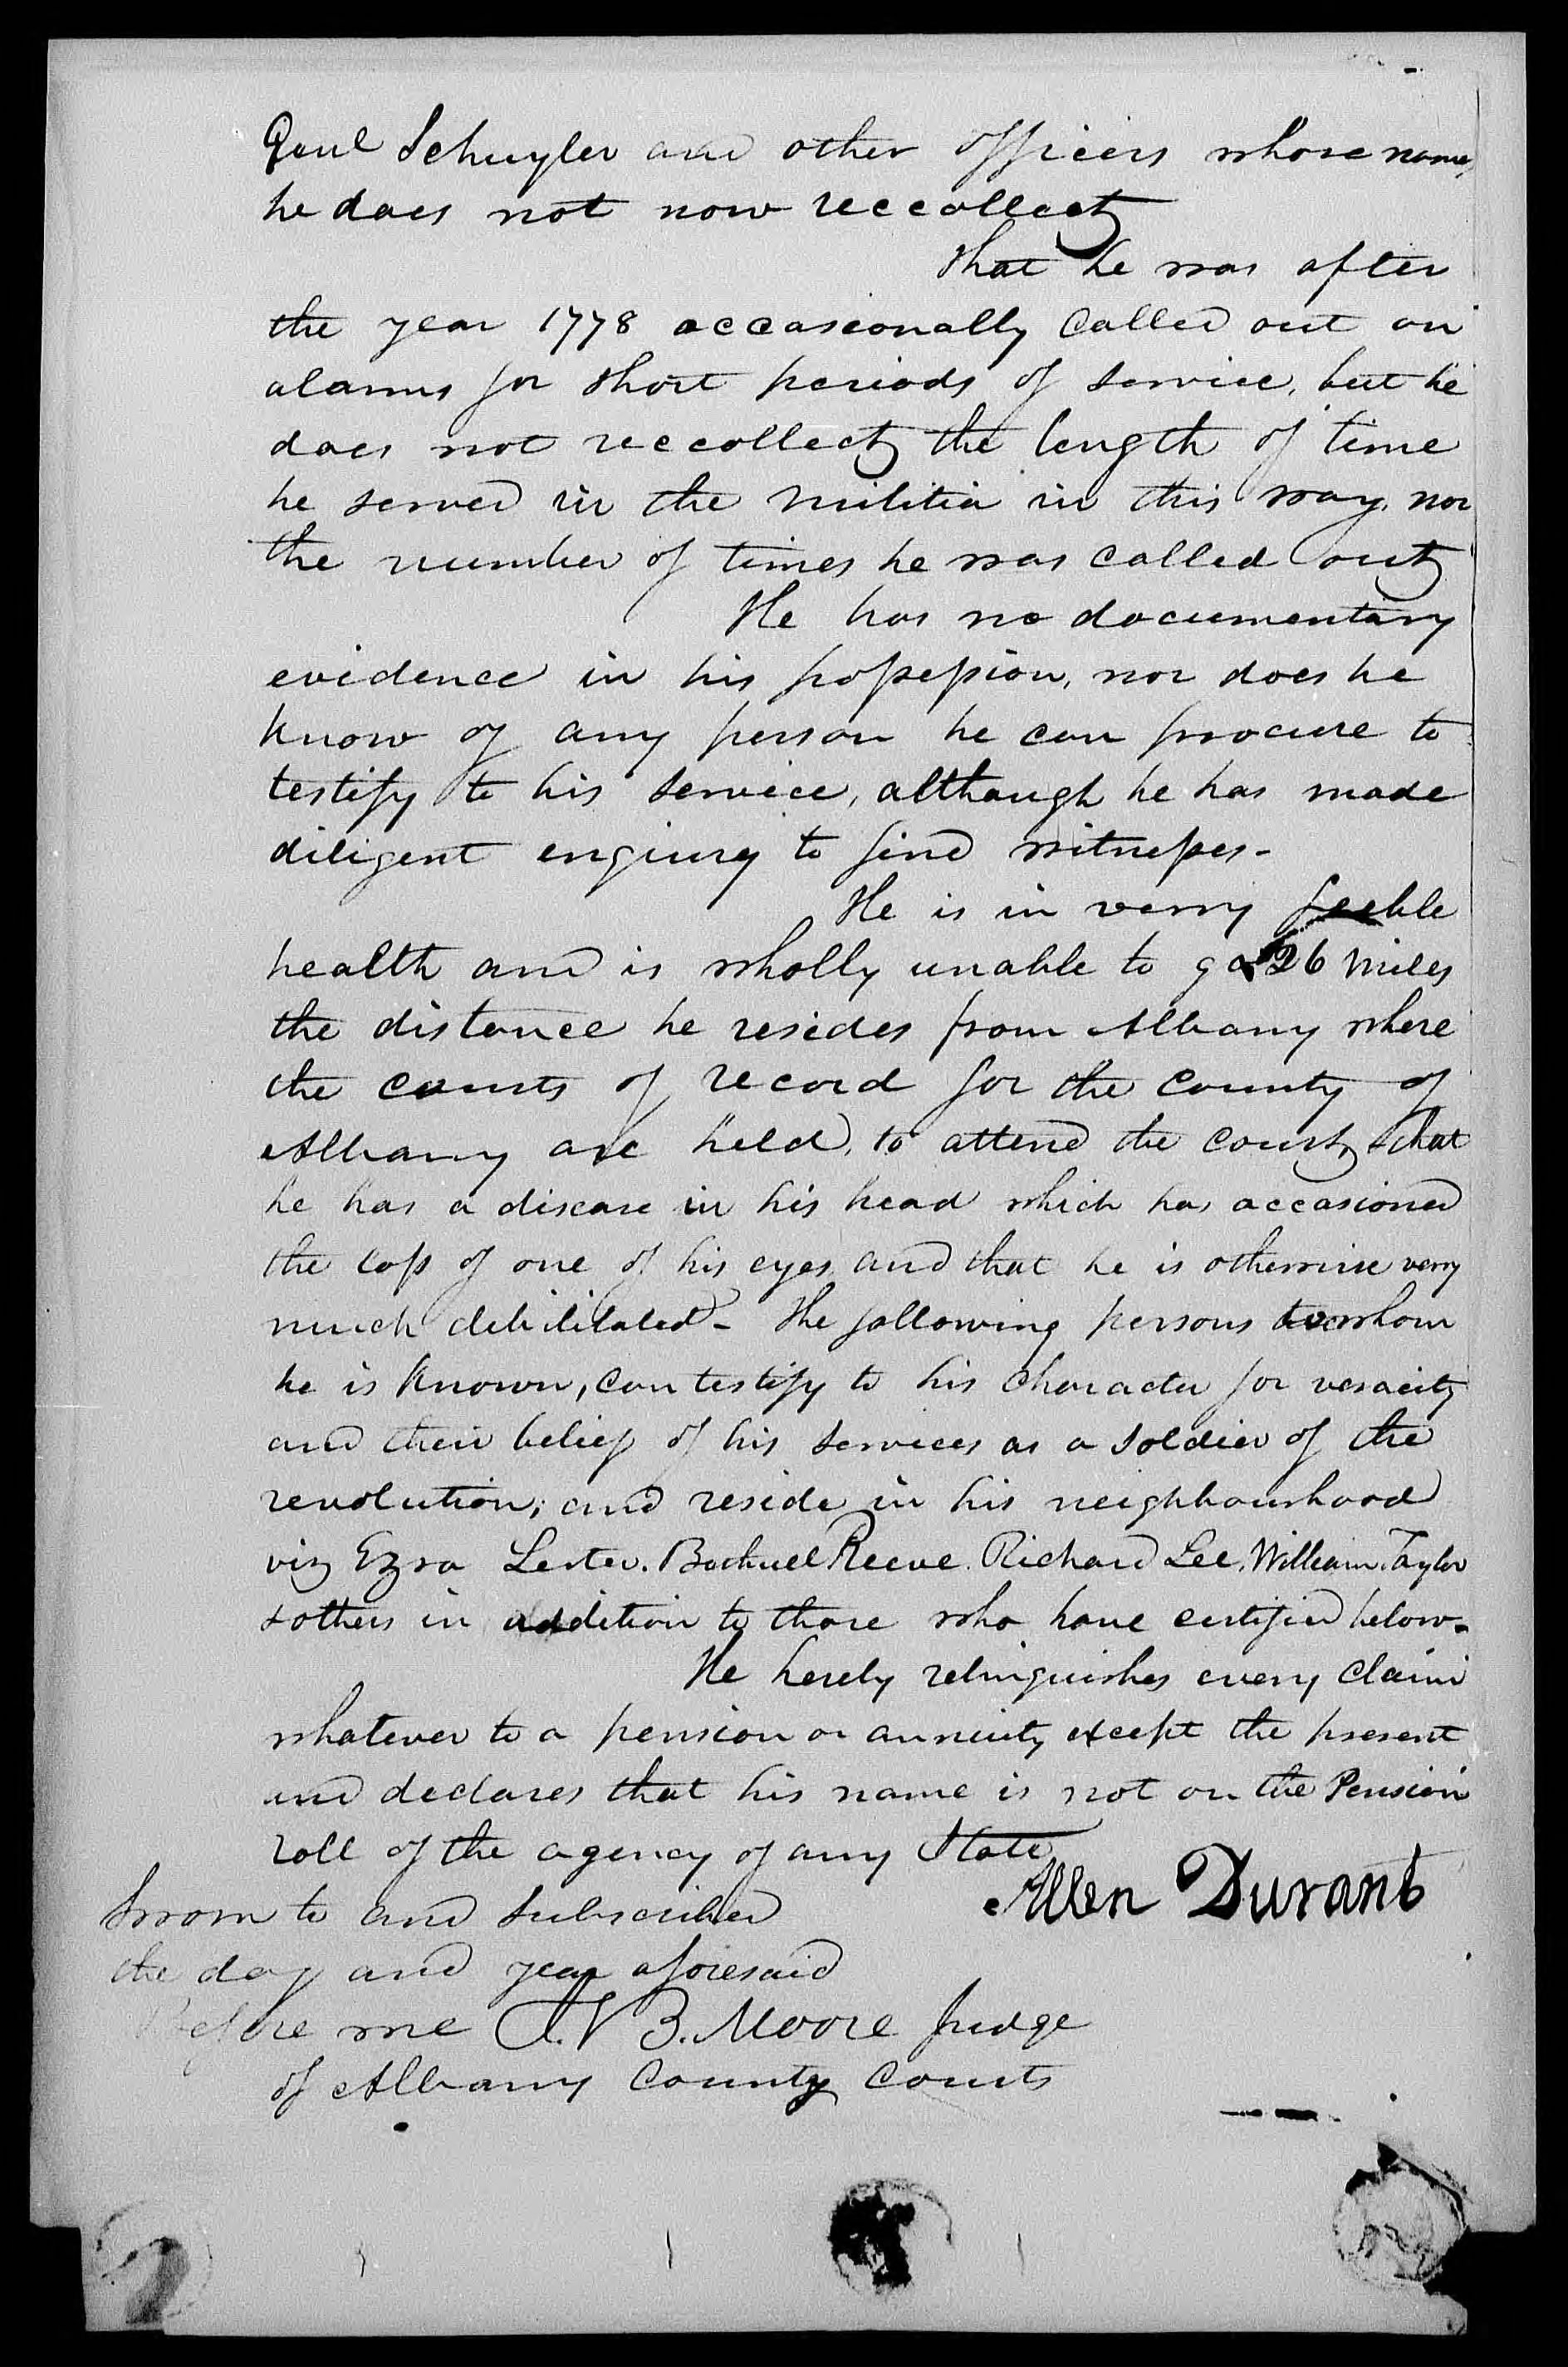 Genl Schuyler and other officers whose names
he does not now reccollect
that he was after
the year 1778 occasionally called out on
alarms for short periods of service, but he
does not reccollect the length of time
he served in the militia in this way, nor
the number of times he was called out
He has no documentary
evidence in his possession, nor does he
know of any person he can procure to
testify to his service, although he has made
diligent enquiry to find witnesses -
He is in verry feeble
health and is wholly unable to go 26 miles
the distance he resides from Albany where
the courts of record for the county of
Albany are held, to attend the court, that
he has a disease in his head which has occasioned
the loss of one of his eyes and that he is otherwise verry
much debilitated - The following persons to whom
he is known, can testify to his character for veracity
and their belief of his services as a soldier of the
revolution, and reside in his neighbourhood
viz Ezra Lester. Reeve. Richard Lee, William Taylor
& others in addition to those who have certified below -
He hereby relinquishes every claim
whatever to a pension or annuity except the present
and declares that his name is not on the Pension
roll of the agency of any State
Allen Durant
Sworn to and subscribed
the day and year aforesaid
Before me A. V B. Moore Judge
of Albany County Courts